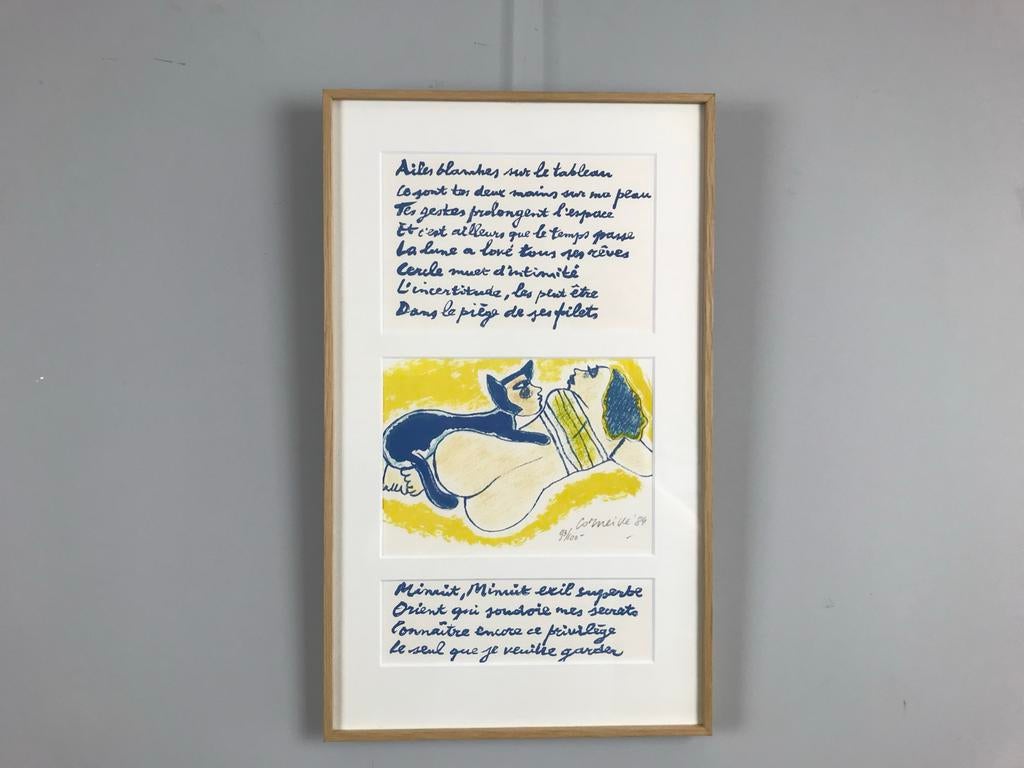 Ailes blanches sur le tableau
Ce sont tes deux mains sur ma peau
Tes gestes prolongent l'espace
Et c'est ailleurs que le temps passe
La lune a lové tous ses rêves
Cercle muet d'intimité
L'incertitude, les peut être
Dans le piège de ses filets
Corneille '84
93/100
Minuit, Minuit exil superbe
Orient qui soudoie mes secrets
Connaître encore ce privilège
Le seul que je veuille garder